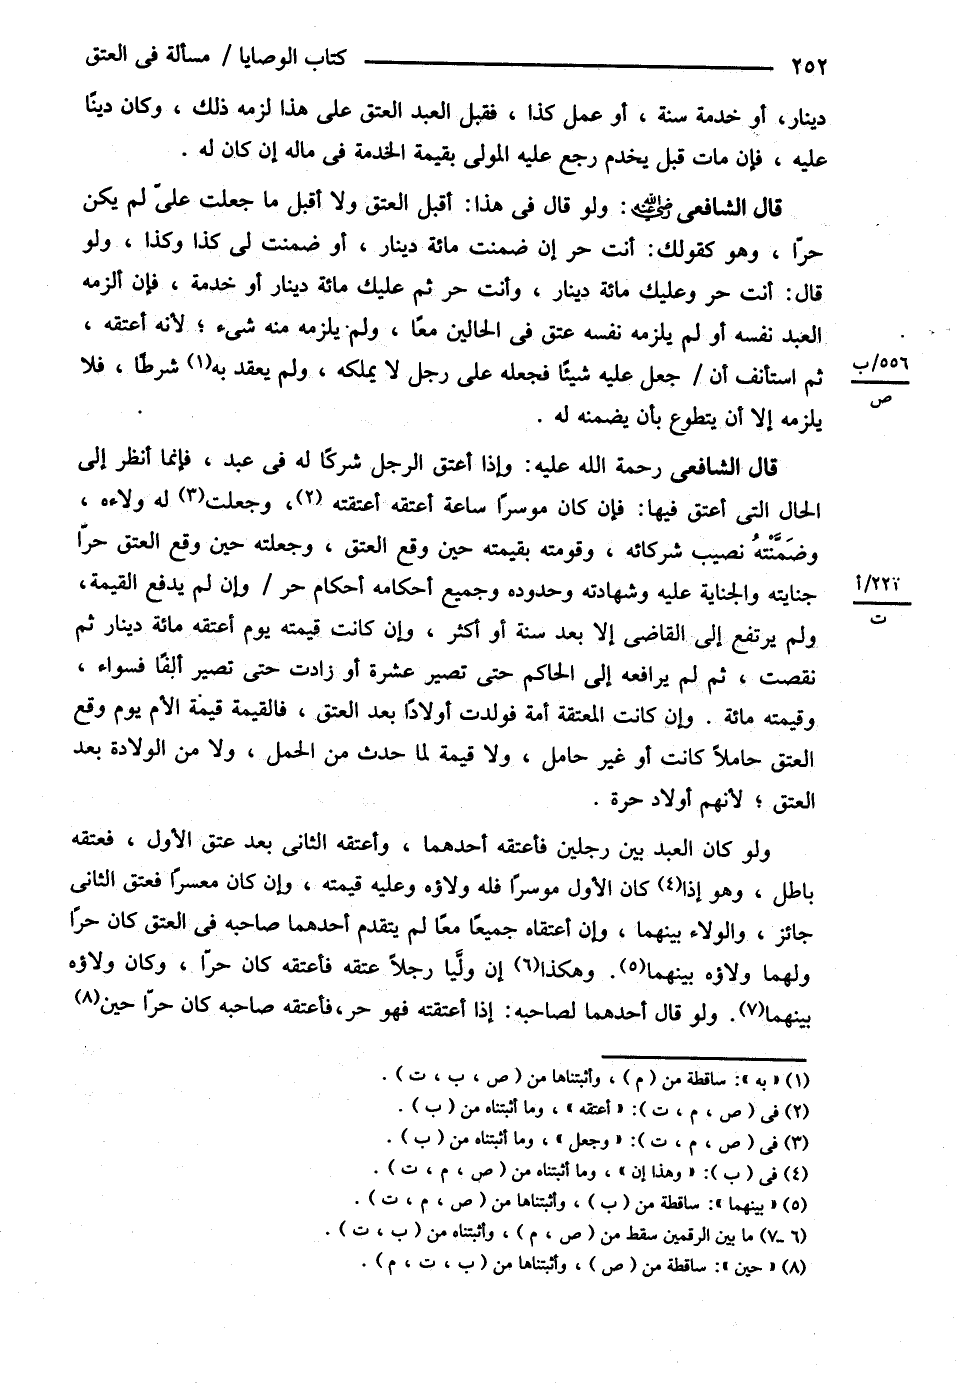 ٢٥٢ كتاب الوصايا / مسألة فى العتق
دينار، أو خدمة سنة ، أو عمل كذا ، فقبل العبد العتق على هذا لزمه ذلك ، وكان دينًا
عليه ، فإن مات قبل يخدم رجع عليه المولى بقيمة الخدمة فى ماله إن كان له .
قال الشافعى رضي الله عنه : ولو قال فى هذا: أقبل العتق ولا أقبل ما جعلت علىّ لم يكن
حرًا ، وهو كقولك: أنت حر إن ضمنت مائة دينار ، أو ضمنت لى كذا وكذا ، ولو
قال: أنت حر وعليك مائة دينار ، وأنت حر ثم عليك مائة دينار أو خدمة ، فإن ألزمه
العبد نفسه أو لم يلزمه نفسه عتق فى الحالين معًا ، ولم يلزمه منه شىء ؛ لأنه أعتقه ،
ثم استأنف أن / جعل عليه شيئًا فجعله على رجل لا يملكه ، ولم يعقد به(١) شرطًا ، فلا
٥٥٦/ب
ص
يلزمه إلا أن يتطوع بأن يضمنه له .
قال الشافعى رحمة الله عليه: وإذا أعتق الرجل شركًا له فى عبد ، فإنما أنظر إلى
الحال التى أعتق فيها: فإن كان موسرًا ساعة أعتقه أعتقته (٢)، وجعلت(٣) له ولاءه ،
وضَمَّنْتُه نصيب شركائه ، وقومته بقيمته حين وقع العتق ، وجعلته حين وقع العتق حرًا
جنايته والجناية عليه وشهادته وحدوده وجميع أحكامه أحكام حر / وإن لم يدفع القيمة،
٢٢٢/أ
ت
ولم يرتفع إلى القاضى إلا بعد سنة أو أكثر ، وإن كانت قيمته يوم أعتقه مائة دينار ثم
نقصت ، ثم لم يرافعه إلى الحاكم حتى تصير عشرة أو زادت حتى تصير ألفًا فسواء ،
وقيمته مائة . وإن كانت المعتقة أمة فولدت أولادًا بعد العتق ، فالقيمة قيمة الأم يوم وقع
العتق حاملاً كانت أو غير حامل ، ولا قيمة لما حدث من الحمل ، ولا من الولادة بعد
العتق ؛ لأنهم أولاد حرة .
ولو كان العبد بين رجلين فأعتقه أحدهما ، وأعتقه الثانى بعد عتق الأول ، فعتقه
باطل ، وهو إذا(٤) كان الأول موسرًا فله ولاؤه وعليه قيمته ، وإن كان معسرًا فعتق الثانى
جائز ، والولاء بينهما ، وإن أعتقاه جميعًا معًا لم يتقدم أحدهما صاحبه فى العتق كان حرًا
ولهما ولاؤه بينهما(٥). وهكذا(٦) إن ولَّيا رجلاً عتقه فأعتقه كان حرًا ، وكان ولاؤه
بينهما(٧). ولو قال أحدهما لصاحبه: إذا أعتقته فهو حر،فأعتقه صاحبه كان حرًا حين(٨)
(١) « به »: ساقطة من ( م ) ، وأثبتناها من ( ص ، ب ، ت ) .
(٢) فى ( ص ، م ، ت ): « أعتقه » ، وما أثبتناه من ( ب ) .
(٣) فى ( ص ، م ، ت ): « وجعل » ، وما أثبتناه من ( ب ) .
(٤) فى ( ب ): « وهذا إن » ، وما أثبتناه من ( ص ، م ، ت ) .
(٥) « بينهما »: ساقطة من ( ب ) ، وأثبتناها من ( ص ، م ، ت ) .
(٦ ـ٧) ما بين الرقمين سقط من ( ص ، م ) ، وأثبتناه من ( ب ، ت ) .
(٨) « حين »: ساقطة من ( ص ) ، وأثبتناها من ( ب ، ت ، م ) .